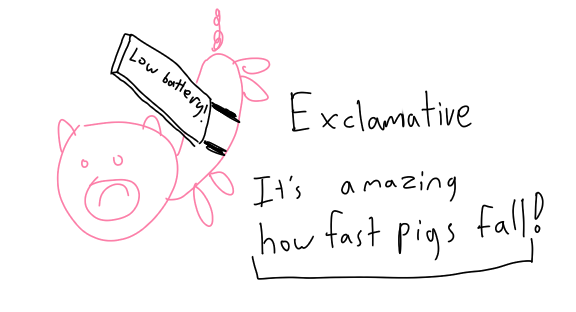 Low battery!
Exclamative
It's amazing
how fast pigs fall!